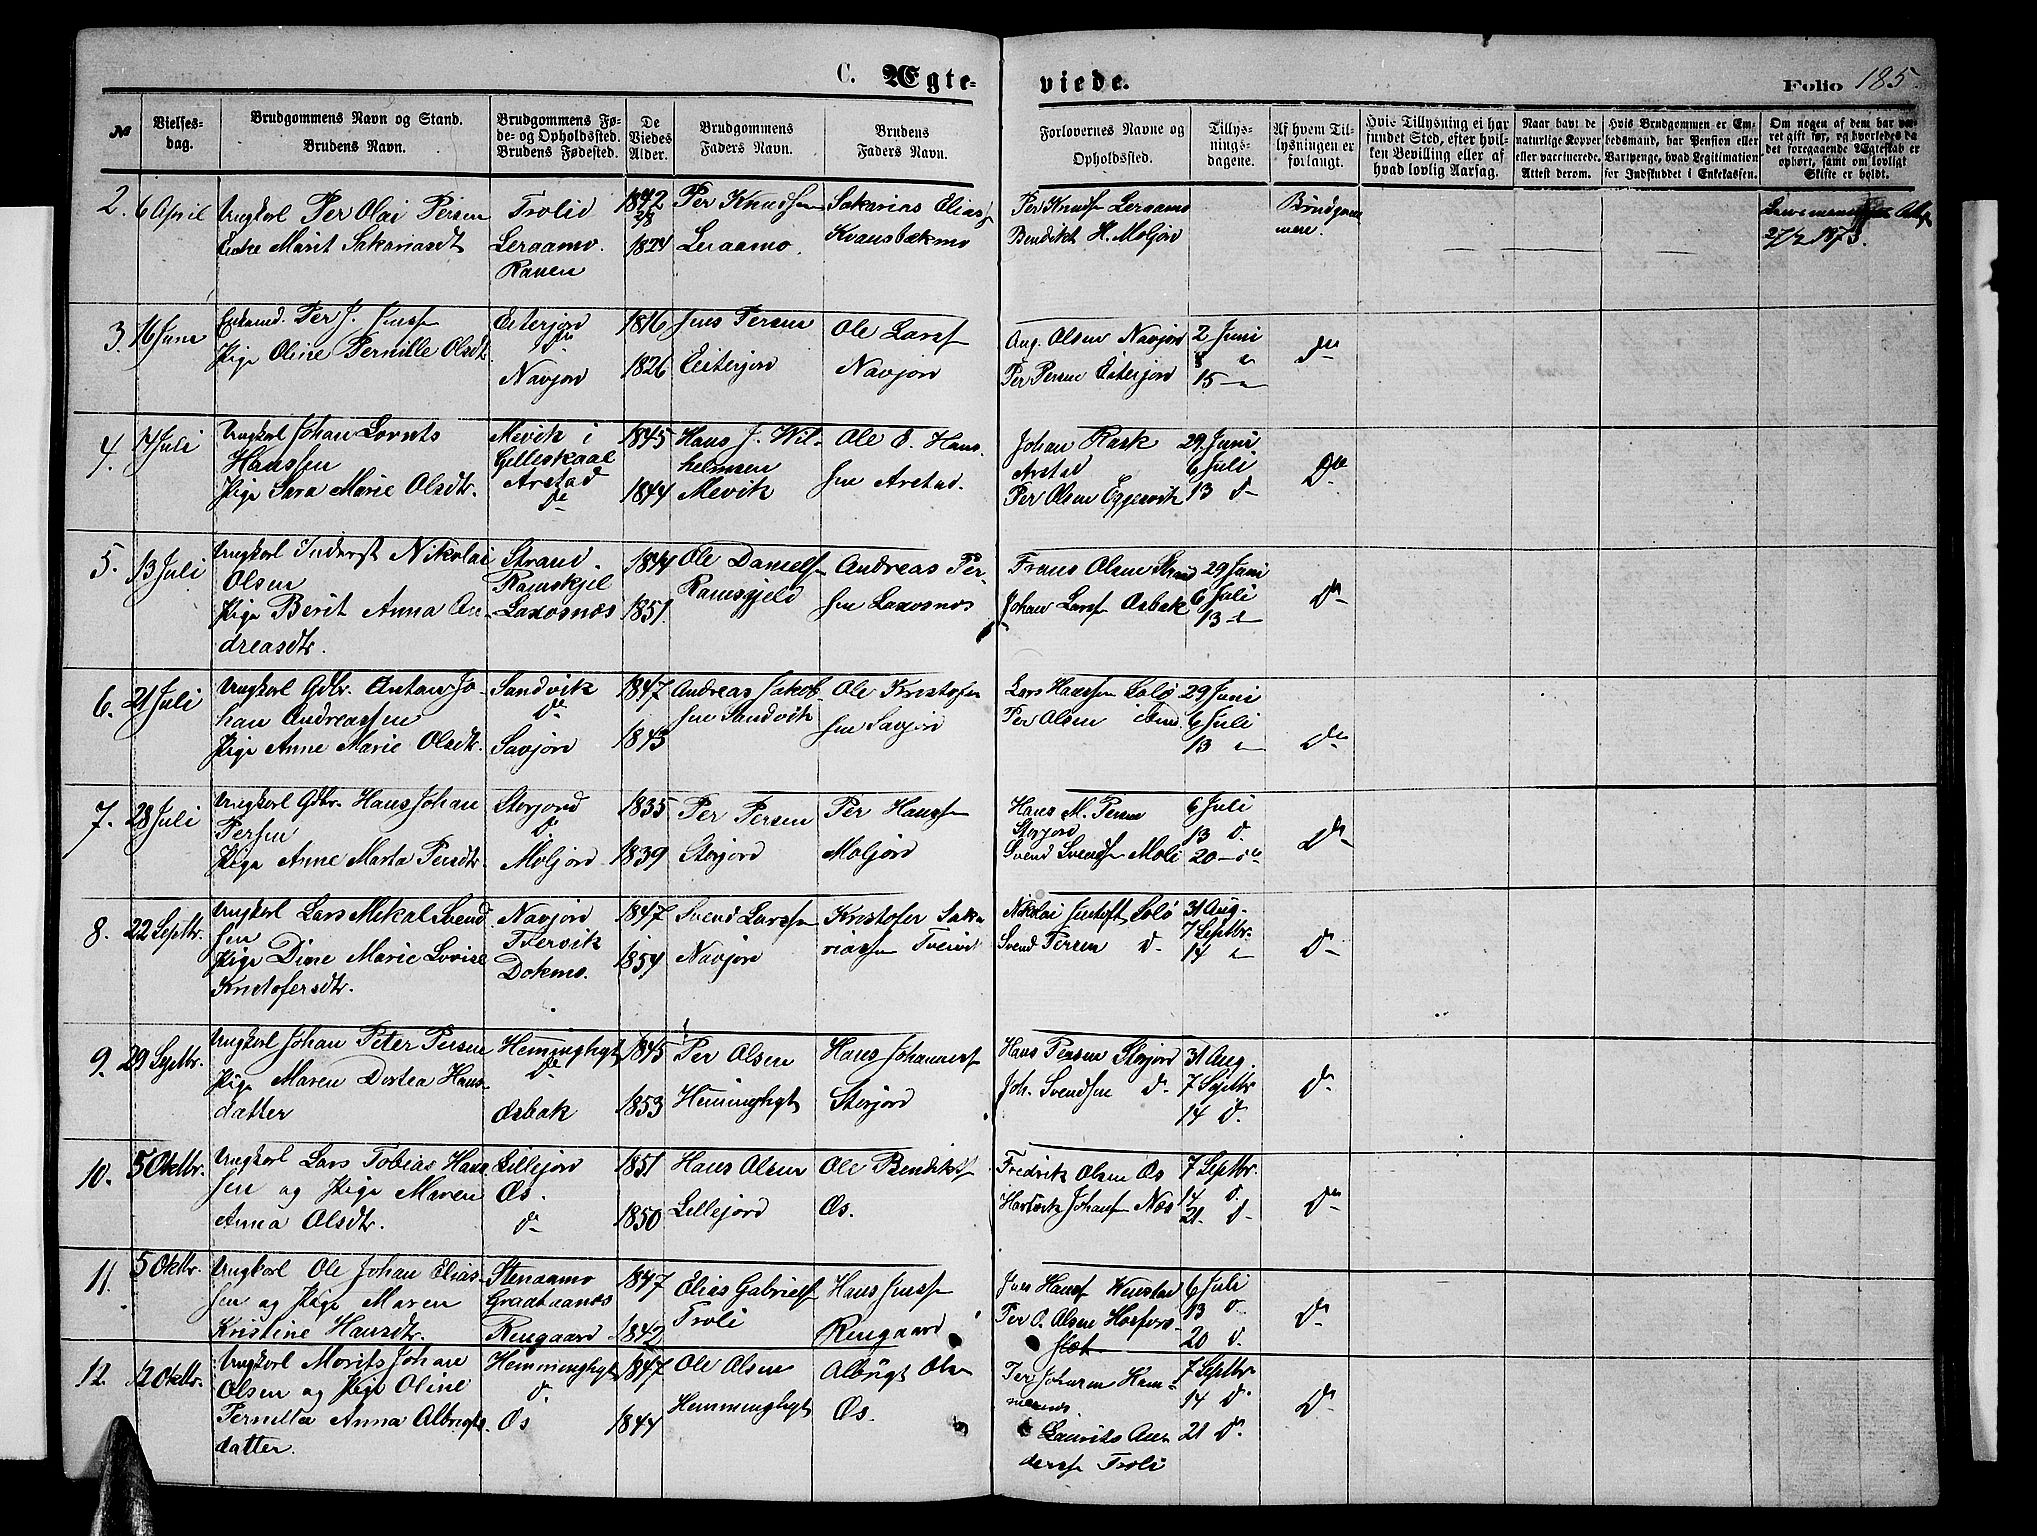 C. Ægte-
viede.
Folio 185.
№
Vielses-
dag.
Brudgommens Navn og Stand.
Brudens Navn.
Brudgommens Fø-
de- og Opholdssted.
Brudens Fødested.
De
Viedes
Alder.
Brudgommens
Faders Navn.
Brudens
Faders Navn.
Forlovernes Navne og
Opholdssted.
Tillys-
nings-
dagene.
Af hvem Til-
lysningen er
forlangt.
Hvis Tillysning ei har
fundet Sted, efter hvil-
ken Bevilling eller af
hvad lovlig Aarsag.
Naar havt de
naturlige Kopper
eller vaccinerede.
Attest derom.
Hvis Brudgommen er Em-
bedsmand, har Pension eller
Vartpenge, hvad Legitimation
for Indskuddet i Enkekassen.
Om nogen af dem har væ-
ret gift før, og hvorledes da
det foregaaende Ægteskab er
ophørt, samt om lovligt
Skifte er holdt.
2. 6 April
Ungkarl Per Olai Persen
Enke Marit Sakariasdt
Trolid
Leraamo.
Ranen
1842
1824
Per Knudsen
Leraamo
Sakarias Elias
Kvansbækmo
Per Knuds Leraamo
Bendikt H. Moljord
27/2 1873.
3. 16 Juni
Enkemd. Per J. Jenss
Pige Oline Pernille Olsdt
Eiterjord
do
Navjord
1816
1826
Jens Persen
Eiterjord
Ole Larss
Navjord
Aug. Olsen Navjord
Per Persen Eiterjord
2 Juni
8 "
15 - "
do
4. 14 Juli
Ungkarl Johan Lornts
Hanssen
Pige Sara Marie Olsdtr.
Mevik i
Gilleskaal
Arstad
do
1845
1844
Hans J. Wil-
helmsen
Mevik
Ole O. Hans-
sen Arstad.
Johan Rask
Arstad
Per Olsen Eggesvik
29 Juni
6 Juli
13 d-
Do
5. 13 Juli
Ungkarl Inderst Nikolai
Olsen
Pige Berit Anna An-
dreasdtr.
Strand.
Ramskjel
Laxosnæs
1844
1851.
Ole Daniels
Ramsgjeld
Andreas Per-
sen Laxosnæs
Frans Olsen Strand
Johan Larss Osbak
29 Juni
6 Juli
13 "
do
6. 21 Juli
Ungkarl Gdbr. Antan Jo-
han Andreassen
Pige Anne Marie Olsdtr.
Sandvik
do
Savjord
1847
1843
Andreas Jakob
sen Sandvik
Ole Kristofer
sen Savjord
Lars Hanssen Solø
Per Olsen ibid.
29 Juni
6 Juli
13 "
do
7. 28 Juli
Ungkarl Gdbr. Hans Johan
Persen
Pige Anne Marta Persdtr.
Storjord
do
Moljord
1835
1839
Per Persen
Storjord
Per Hanss
Moljord
Hans M. Persen
Storjord
Svend Svends Moli
6 Juli
13 d.
20 - do
Do
8. 22 Septbr.
Ungkarl Lars Mekal Svend
sen
Pige Dine Marie Lovise
Kristofersdtr.
Navjord
Tvervik
Dokmo.
1847
1854
Svend Larss
Navjord
Kristofer Saka
riassen
Svend Persen d-
31 Aug.
7 Septbr.
14 "
do
9. 29 Septbr.
Ungkarl Johan Peter Persen
Pige Maren Dortea Hans-
datter
Hemminghygt
do
Osbak
1845
1853
Per Olsen
Hemminghygt
Hans Johanness
Storjord
Hans Persen Storjord
Joh. Svendsen d-
31 Aug.
7 Septbr
14 d.
do
10. 5 Oktbr.
Ungkarl Lars Tobias Hans
sen og Pige Maren
Anna Olsdtr.
Lillejord
Os.
do
1851
1850
Hans Olsen
Lillejord
Ole Bendikts
Os.
Fredrik Olsen Os
Hartvik Johans Næs
7 Septbr.
14 d.
21. d-
do
11. 5 Oktbr.
Ungkarl Ole Johan Elias-
sen og Pige Maren
Kristine Hansdtr.
Stenaamo
Graatnanæs
Rengaard
1847
1842
Elias Gabriels
Troli
Hans Jenss
Rengaard
Jens Hanss
Per O. Olsen
6 Juli
13 d.
20 d.
do
12. 12 Oktbr.
Ungkarl Morits Johan
Olsen og Pige Oline
Pernilla Anna Albregts-
datter.
Hemminghygt
d.
Os
1847
1844
Ole Olsen
Hemminghygt
Albrigt Ols
Os.
Per Johnsen Ham-
mernes
Laurits An-
derss Troli
7 Septbr
14 d.
21 d.
do